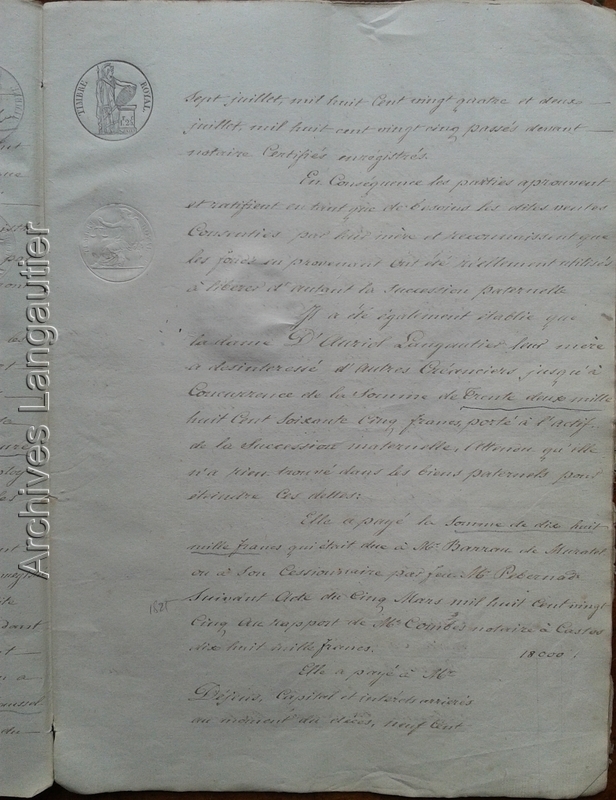 TIMBRE ROYAL
Sept juillet, mil huit Cent vingt quatre et deux
juillet, mil huit cent vingt cinq passés devant
notaire Certifiés enregistrés.
En Conséquence les parties aprouvent
et ratifient en tant que de besoins les dites ventes
Consenties par leur mère et reconnaissent que
les fonds en provenant ont été réellement utilisés
à libérer d'autant la succession paternelle
Il a été également établie que
la dame D'Auriol Langautier leur mère
a desinteressé d'autres Créanciers jusqu'à
Concurrence de la Somme de Trente deux mille
huit Cent Soixante Cinq francs, porté à l'actif
de la Succession maternelle, attendu qu'elle
n'a rien trouvé dans les biens paternels pour
éteindre Ces dettes:
Elle a payé la Somme de dix huit
mille francs qui était due à Mr Barrau de Muratel
ou à Son Cessionnaire par feu Mr
Suivant Acte du Cinq Mars mil huit Cent vingt
1825
Cinq au rapport de Me Combes notaire à Castres
dix huit mille francs. 18000
Elle a payé à Mr
Capital et intérêts arriérés
au moment du décès, neuf Cent
Archives Langautier